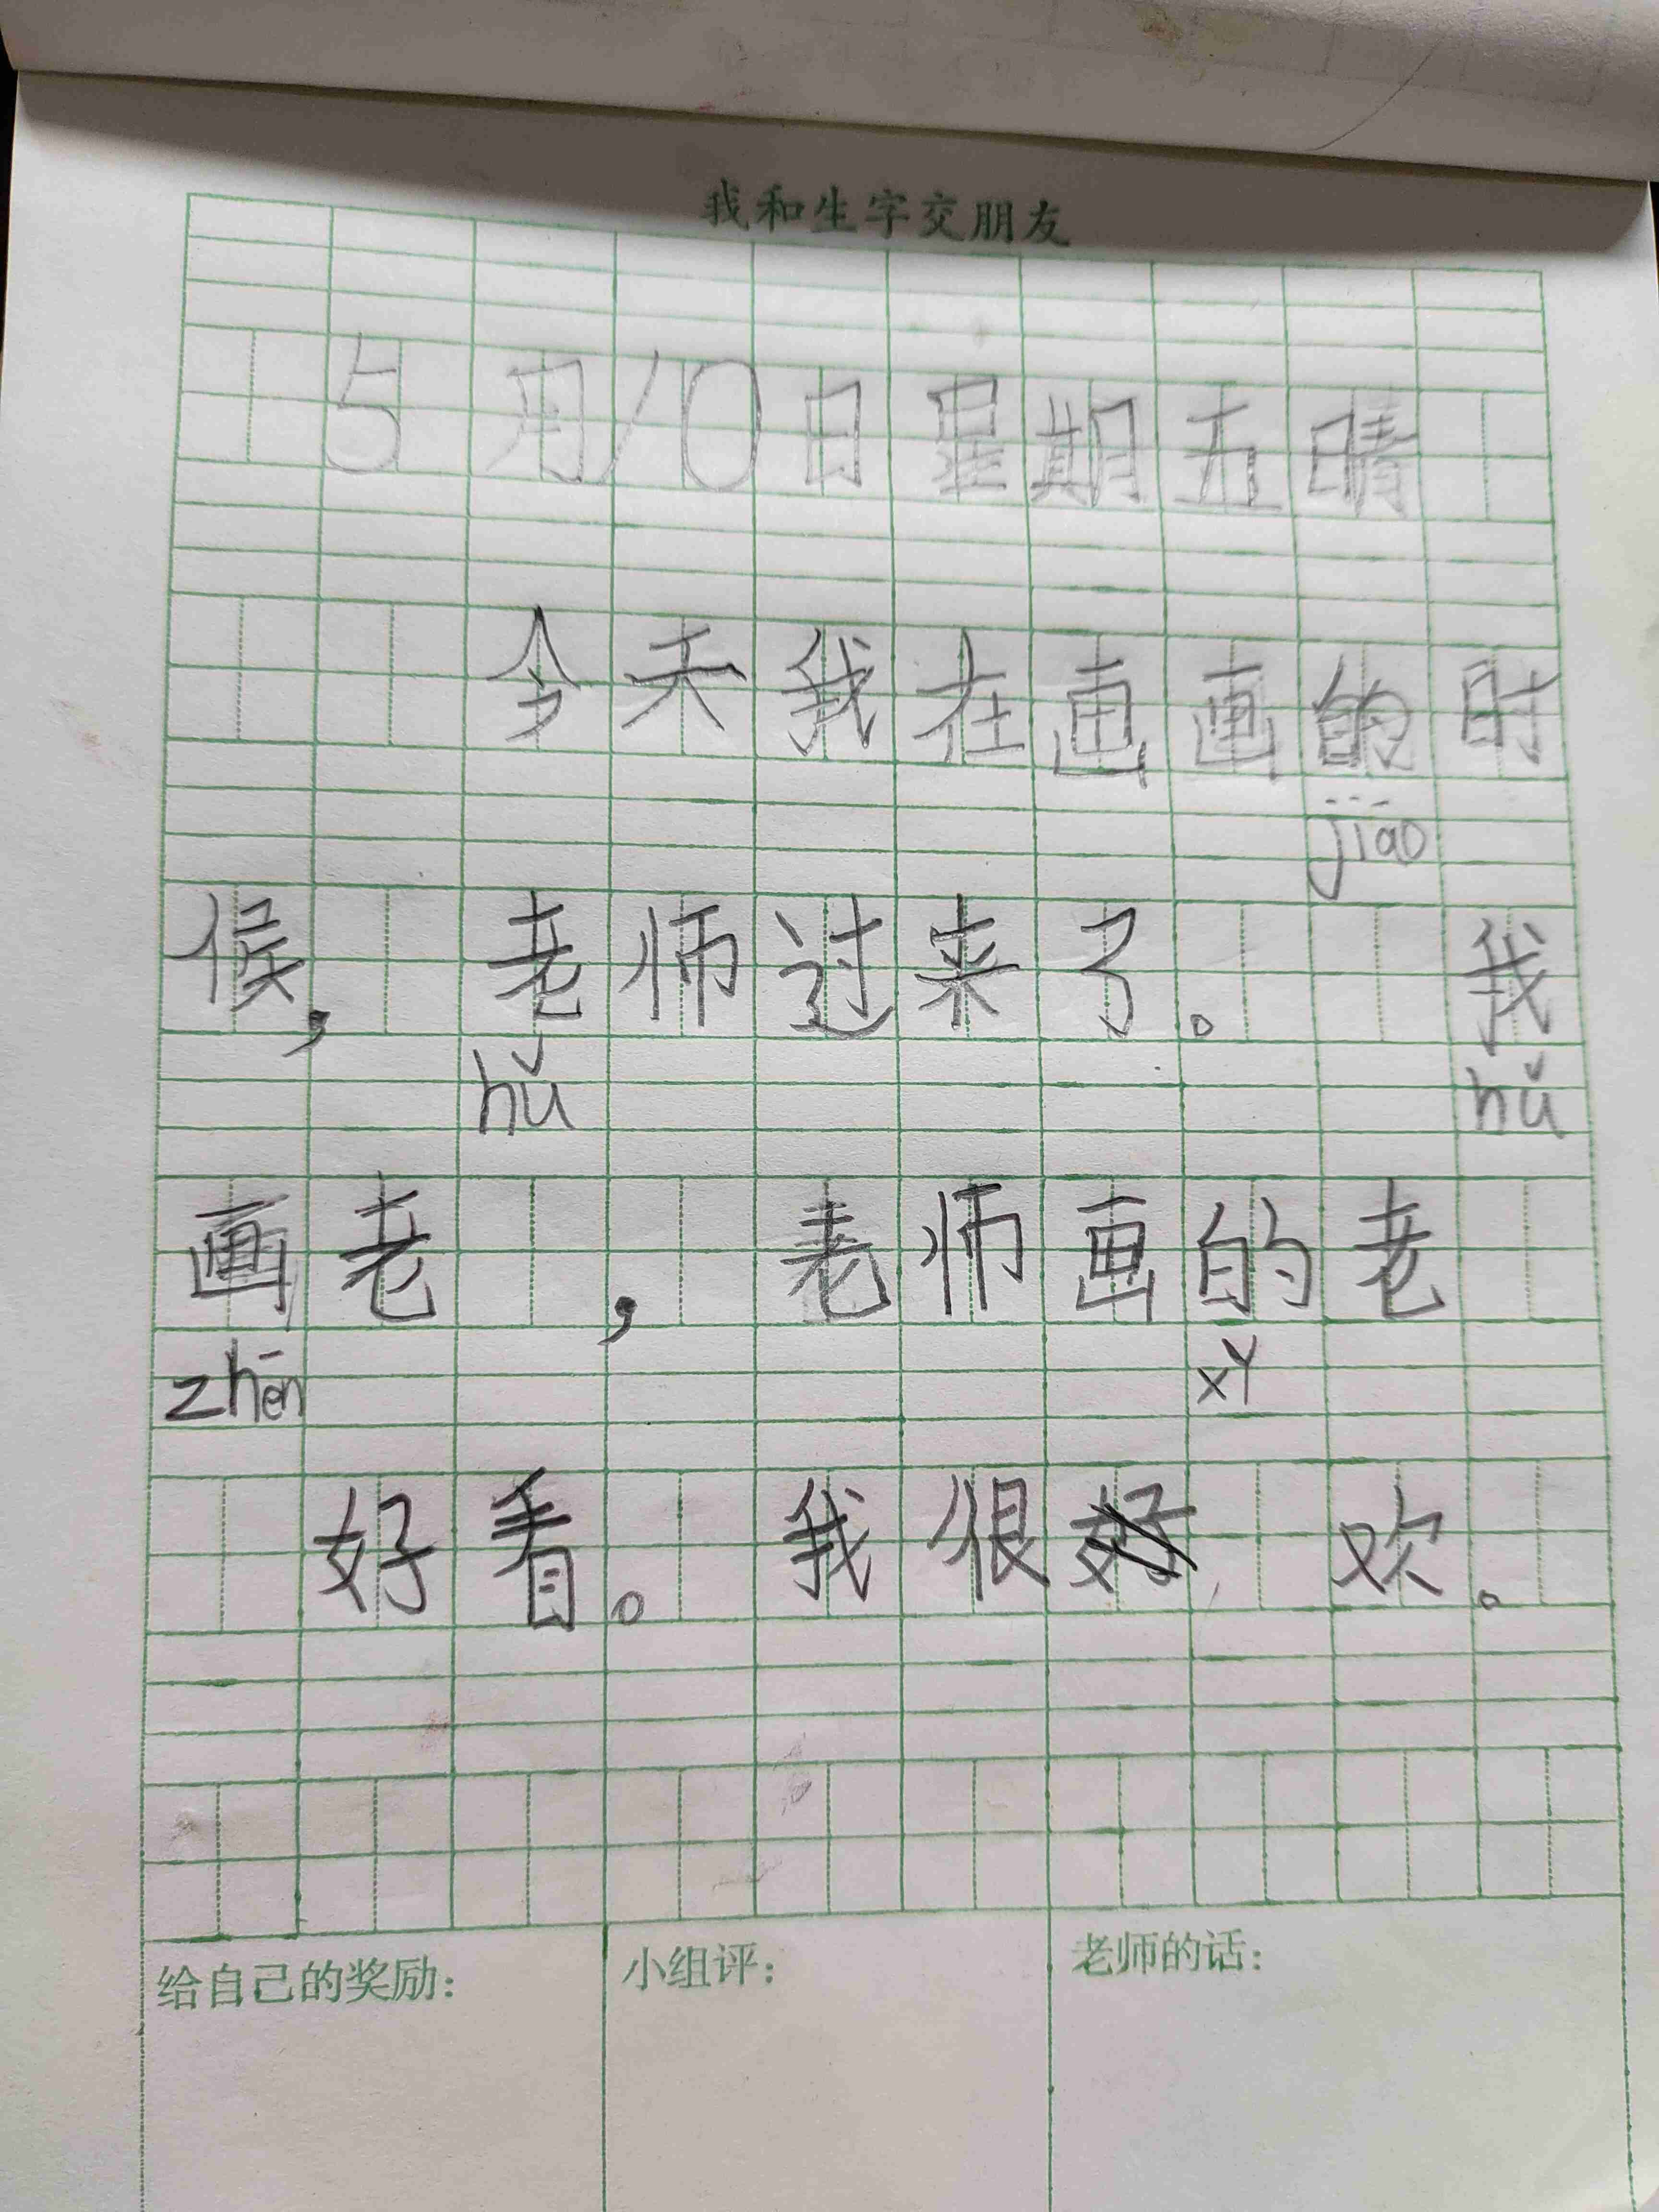 我和生字交朋友
5月10日星期五晴
今天我在画画的时
jiāo
候，老师过来了。我
hǔ hǔ
画老，老师画的老
zhēn xǐ
好看。我很好欢。
给自己的奖励：
小组评：
老师的话：